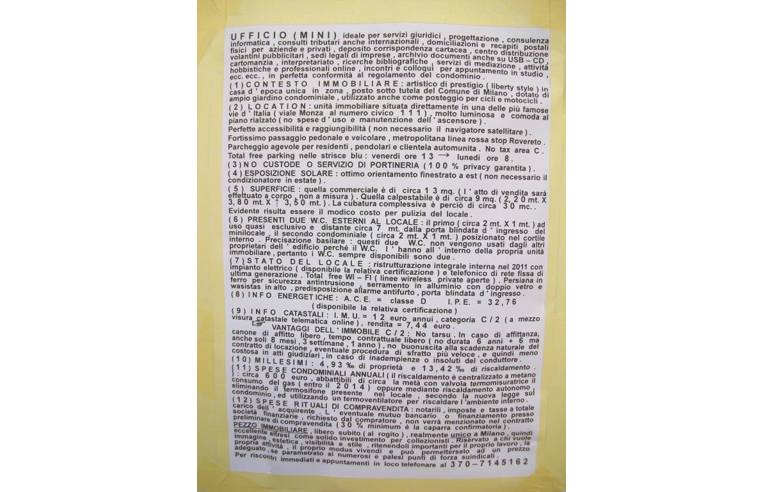 UFFICIO (MINI) ideale per servizi giuridici , progettazione , consulenza
informatica , consulti tributari anche internazionali , domiciliazioni e recapiti postali
fisici per aziende e privati , deposito corrispondenza cartacea , centro distribuzione
volantini pubblicitari , sedi legali di imprese , archivio documenti anche su USB – CD ,
cartomanzia , interpretariato , ricerche bibliografiche , servizi di mediazione , attività
hobbistiche e professionali online , incontri e colloqui per appuntamento in studio ,
ecc. ecc. , in perfetta conformità al regolamento del condominio .
(1) CONTESTO IMMOBILIARE : artistico di prestigio ( liberty style ) in
casa d ' epoca unica in zona , posto sotto tutela del Comune di Milano , dotato di
ampio giardino condominiale , utilizzato anche come posteggio per cicli e motocicli .
(2) LOCATION : unità immobiliare situata direttamente in una delle più famose
vie d ' Italia ( viale Monza al numero civico 111 ) , molto luminosa e comoda al
piano rialzato ( no spese d ' uso e manutenzione dell ' ascensore ) .
Perfette accessibilità e raggiungibilità ( non necessario il navigatore satellitare ) .
Fortissimo passaggio pedonale e veicolare , metropolitana linea rossa stop Rovereto .
Parcheggio agevole per residenti , pendolari e clientela automunita . No tax area C .
Total free parking nelle strisce blu : venerdì ore 13 → lunedì ore 8 .
(3) NO CUSTODE O SERVIZIO DI PORTINERIA ( 100 % privacy garantita ) .
(4) ESPOSIZIONE SOLARE : ottimo orientamento finestrato a est ( non necessario il
condizionatore in estate ) .
(5) SUPERFICIE : quella commerciale è di circa 13 mq. ( l ' atto di vendita sarà
effettuato a corpo , non a misura ) . Quella calpestabile è di circa 9 mq. ( 2,20 mt. X
3,80 mt. X ↑ 3,50 mt. ) . La cubatura complessiva è perciò di circa 30 mc. .
Evidente risulta essere il modico costo per pulizia del locale .
(6) PRESENTI DUE W.C. ESTERNI AL LOCALE : il primo ( circa 2 mt. X 1 mt. ) ad
uso quasi esclusivo e distante circa 7 mt. dalla porta blindata d ' ingresso del
minilocale , il secondo condominiale ( circa 2 mt. X 1 mt. ) posizionato nel cortile
interno . Precisazione basilare : questi due W.C. non vengono usati dagli altri
proprietari dell ' edificio perchè il W.C. l ' hanno all ' interno della propria unità
immobiliare , pertanto i W.C. sempre disponibili sono due .
(7) STATO DEL LOCALE : ristrutturazione integrale interna nel 2011 con
impianto elettrico ( disponibile la relativa certificazione ) e telefonico di rete fissa di
ultima generazione . Total free WI – FI ( linee wireless private aperte ) . Persiana in
ferro per sicurezza antintrusione , serramento in alluminio con doppio vetro e
wasistas in alto , predisposizione allarme antifurto , porta blindata d ' ingresso .
(8) INFO ENERGETICHE : A.C.E. = classe D I.P.E. = 32,76
( disponibile la relativa certificazione )
(9) INFO CATASTALI : I.M.U. = 12 euro annui , categoria C/2 ( a mezzo
visura catastale telematica online ) , rendita = 7,44 euro .
☞ VANTAGGI DELL ' IMMOBILE C/2 : No tarsu . In caso di affittanza,
canone di affitto libero , tempo contrattuale libero ( no durata 6 anni + 6 ma
anche soli 8 mesi , 3 settimane , 1 anno ) , no buonuscita alla scadenza naturale del
contratto di locazione , eventuale procedura di sfratto più veloce , e quindi meno
costosa in atti giudiziari , in caso di inadempienze o insoluti del conduttore .
(10) MILLESIMI : 4,93 ‰ di proprietà e 13,42 ‰ di riscaldamento .
(11) SPESE CONDOMINIALI ANNUALI ( il riscaldamento è centralizzato a metano
) : circa 600 euro , abbattibili di circa la metà con valvola termomisuratrice il
consumo del gas ( entro il 2014 ) oppure mediante riscaldamento autonomo
eliminando il termosifone presente nel locale , secondo la nuova legge sul
condominio , ed utilizzando un termoventilatore per riscaldare l ' ambiente interno .
(12) SPESE RITUALI DI COMPRAVENDITA : notarili , imposte e tasse a totale
carico dell ' acquirente . L ' eventuale mutuo bancario o finanziamento presso
società finanziarie , richiesto dal compratore , non verrà menzionato nel contratto
preliminare di compravendita ( 30 % minimum è la caparra confirmatoria ) .
PEZZO IMMOBILIARE , libero subito ( al rogito ) , realmente unico a Milano , quindi
eccellente altresì come solido investimento per collezionisti . Riservato a chi vuole
immagine , estetica , visibilità e stile , ritenendoli importanti per il proprio lavoro , la
propria attività , il proprio modus vivendi e può permetterselo ad un prezzo
adeguato , se parametrato ai numerosi e palesi punti di forza suindicati .
Per riscontri immediati e appuntamenti in loco telefonare al 370–7145162